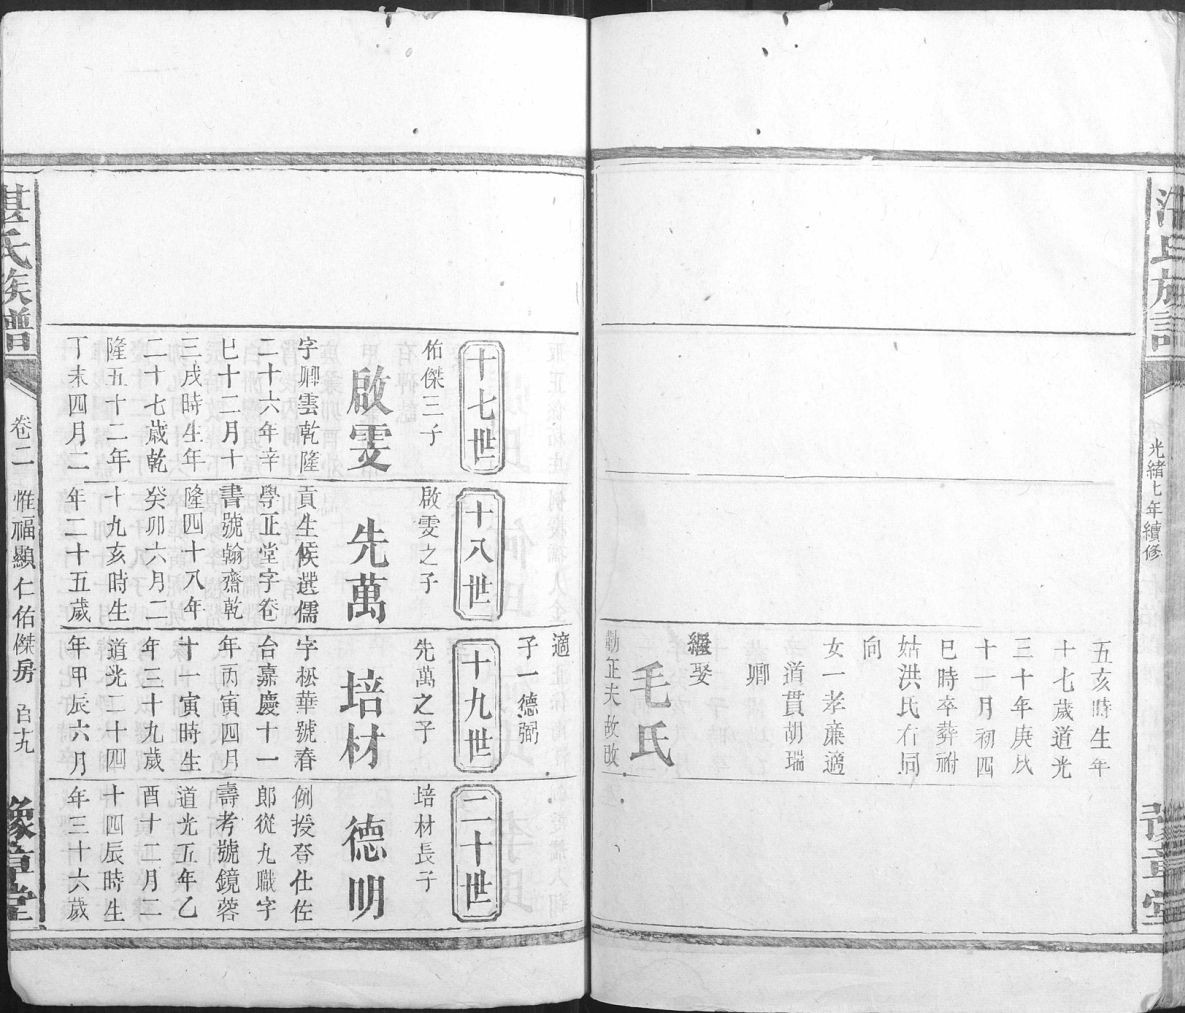 湛氏族譜
光緒七年續修
豫章堂
五亥時生年
十七歲道光
三十年庚戌
十一月初四
巳時卒葬祔
姑洪氏右同
向
女一孝廉適
道貫胡瑞
卿
繼娶
毛氏
勷正夫故改
適
子一德弼
十七世
佑傑三子
啟雯
字卿雲乾隆
二十六年辛
巳十二月十
三戌時生年
二十七歲乾
隆五十二年
丁未四月二
十八世
啟雯之子
先萬
貢生候選儒
學正堂字卷
書號翰齋乾
隆四十八年
癸卯六月二
十九亥時生
年二十五歲
十九世
先萬之子
培材
字松華號春
台嘉慶十一
年丙寅四月
十一寅時生
年三十九歲
道光二十四
年甲辰六月
二十世
培材長子
德明
例授登仕佐
郎從九職字
壽考號鏡蓉
道光五年乙
酉十二月二
十四辰時生
年三十六歲
湛氏族譜
卷二
惟福顯仁佑傑房
百十九
豫章堂